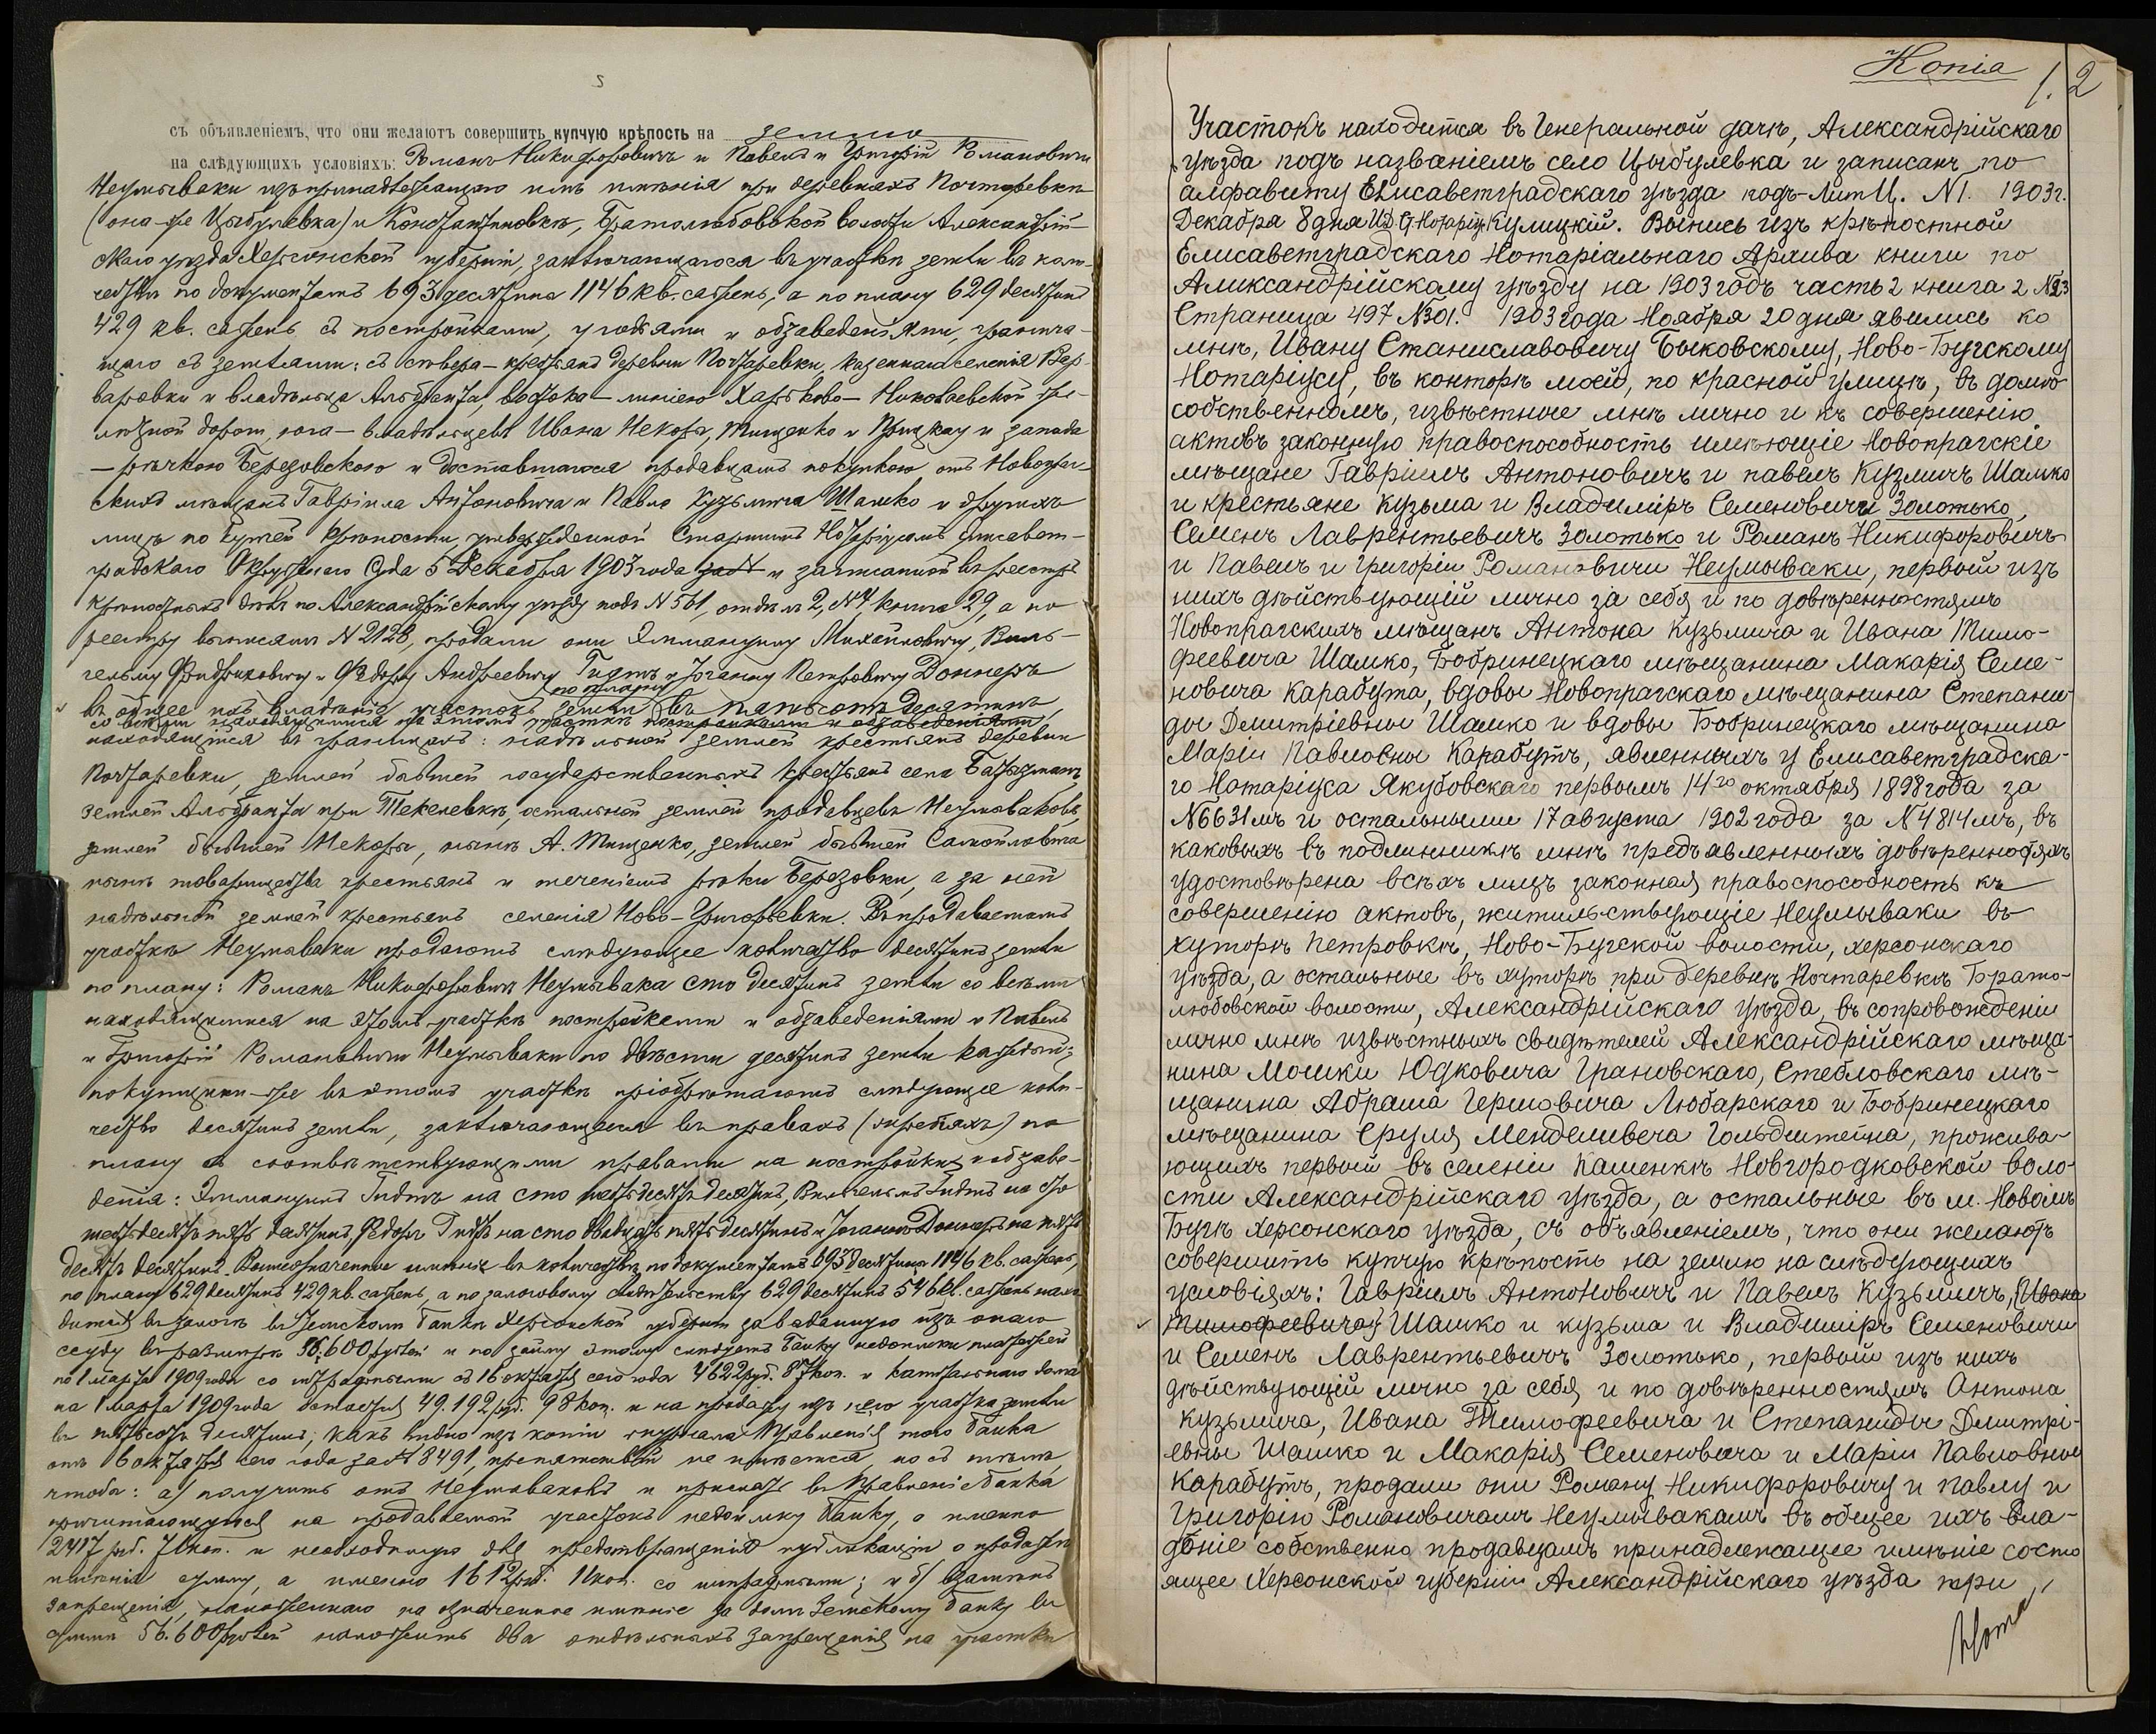 5
съ объявленіемъ, что они желаютъ совершить купчую крѣпость на землю
на слѣдующихъ условіяхъ: Романъ Никифоровичъ и Павелъ и Григорій Романовичи
Неумываки изъ принадлежащаго имъ имѣнія при деревняхъ Почтаревкѣ
(она-же Цыбулевка) и Константиновкѣ, Братолюбовской волости Александрій-
скаго уѣзда Херсонской губерніи, заключающагося въ участкѣ земли въ коли-
чествѣ по документамъ 693 десятины 1146 кв. сажень, а по плану 629 десятинъ
429 кв. сажень съ постройками, угодьями и обзаведеніями, гранича-
щаго съ землями: съ сѣвера – крестьянъ деревни Почтаревки, казеннаго селенія Вер-
варовки и владѣльца Альбранта, востока – линіею Харьково-Николаевской же-
лѣзной дороги, юга – владѣльцевъ Ивана Некоры, Тищенко и Прицкау и запада
– рѣчкою Березовскою и доставшагося продавцамъ покупкою отъ Новопраг-
скихъ мѣщанъ Гавріила Антоновича и Павла Кузьмича Шамко и другихъ
лицъ по купчей крѣпости, утвержденной Старшимъ Нотаріусомъ Елисавет-
градскаго Окружнаго Суда 5 Декабря 1903 года и записанной въ реестръ
крѣпостныхъ дѣлъ по Александрійскому уѣзду подъ N 561, отдѣлъ 2, N 4, книга 29, а по
реестру выписями N 2128, продали они Эммануилу Михайловичу, Виль-
гельму Фридриховичу и Федору Андреевичу Гидтъ и Іоганну Петровичу Доннеръ
по плану
въ общее ихъ владѣніе участокъ земли въ пятьсотъ десятинъ,
со всѣми находящимися на этомъ участкѣ постройками и обзаведеніями
находящійся въ границахъ: надѣльной землей крестьянъ деревни
Почтаревки, землей бывшей государственныхъ крестьянъ села
землей Альбранта при Текелевкѣ, остальной землей продавцевъ Неумываковъ,
землей бывшей Некоры, нынѣ А. Тищенко, землей бывшей Самойловича
нынѣ товарищества крестьянъ и теченіемъ рѣки Березовки, а за ней
надѣльной землей крестьянъ селенія Ново-Григорьевки. Въ продаваемомъ
участкѣ Неумываки продаютъ слѣдующее количество десятинъ земли
по плану: Романъ Никифоровичъ Неумывака сто десятинъ земли со всѣми
находящимися на этомъ участкѣ постройками и обзаведеніями и Павелъ
и Григорій Романовичи Неумываки по двѣсти десятинъ земли каждый;
покупщики-же въ этомъ участкѣ пріобрѣтаютъ слѣдующее коли-
чество десятинъ земли, заключающееся въ правахъ (жребіяхъ) по
плану съ соотвѣтствующими правами на постройки и обзаве-
денія: Эммануилъ Гидтъ на сто шестьдесятъ десятинъ, Вильгельмъ Гидтъ на сто
шестьдесятъ пять десятинъ, Федоръ Гидтъ на сто двадцать пять десятинъ и Іоганнъ Доннеръ на пять-
десятъ десятинъ. Вышеозначенное имѣніе въ количествѣ по документамъ 693 десятины 1146 кв. сажень,
по плану 629 десятинъ 429 кв. сажень, а по залоговому свидѣтельству 629 десятинъ 546 кв. сажень нахо-
дится въ залогѣ въ Земскомъ Банкѣ Херсонской губерніи за выданную изъ онаго
ссуду въ размѣрѣ 56.600 рублей и по займу этому слѣдуетъ Банку недоимки платежей
по 1 марта 1909 года со штрафными съ 16 октября сего года 4622 руб. 87 коп. и капитальнаго долга
на 1 марта 1909 года остается 49.192 руб. 98 коп. и на продажу изъ него участка земли
въ пятьсотъ десятинъ, какъ видно изъ копіи журнала Правленія того Банка
отъ 6 октября сего года за N 8491, препятствій не имѣется, но съ тѣмъ,
чтобы: а) получить отъ Неумываковъ и прислать въ Правленіе Банка
причитающуюся на продаваемый участокъ недоимку Банку, а именно
2417 руб. 71 коп. и необходимую для предотвращенія публикаціи о продажѣ
имѣнія сумму, а именно 1612 руб. 11 коп. со штрафными; и б) взамѣнъ
запрещенія, наложеннаго на означенное имѣніе за долгъ Земскому Банку въ
суммѣ 56.600 рублей наложить два отдѣльныхъ запрещенія на участки
Копія
1. 2
Участокъ находится въ Генеральной дачѣ, Александрійскаго
уѣзда подъ названіемъ село Цыбулевка и записанъ по
алфавиту Елисаветградскаго уѣзда подъ Лит Ц. N 1. 1903 г.
Декабря 8 дня И.Д. С. Нотаріуса Кулицкій. Выпись изъ крѣпостной
Елисаветградскаго Нотаріальнаго Архива книги по
Александрійскому уѣзду на 1903 годъ часть 2 книга 2 N 23
Страница 497 N 301. 1903 года Ноября 20 дня явились ко
мнѣ, Ивану Станиславовичу Быковскому, Ново-Бугскому
Нотаріусу, въ конторѣ моей, по красной улицѣ, въ домѣ
собственномъ, извѣстные мнѣ лично и къ совершенію
актовъ законную правоспособность имѣющіе Новопрагскіе
мѣщане Гавріилъ Антоновичъ и павелъ Кузмичъ Шамко
и крестьяне Кузьма и Владиміръ Семеновичи Золотько,
Семенъ Лаврентьевичъ Золотько и Романъ Никифоровичъ
и Павелъ и Григоріи Романовичи Неумываки, первый изъ
нихъ дѣйствующій лично за себя и по довѣренностямъ
Новопрагскихъ мѣщанъ Антона Кузьмича и Ивана Тимо-
феевича Шамко, Бобринецкаго мѣщанина Макарія Семе-
новича Карабута, вдовы Новопрагскаго мѣщанина Степани-
ды Дмитріевны Шамко и вдовы Бобринецкаго мѣщанина
Маріи Павловны Карабутъ, явленныхъ у Елисаветградска-
го Нотаріуса Якубовскаго первымъ 14го октября 1898 года за
N 6631мъ и остальными 17 августа 1902 года за N 4814мъ, въ
каковыхъ въ подлинникѣ мнѣ предъявленныхъ довѣренностяхъ
удостовѣрена всѣхъ лицъ законная правоспособность къ
совершенію актовъ, жительствующіе Неумываки въ
хуторѣ Петровкѣ, Ново-Бугской волости, херсонскаго
уѣзда, а остальные въ хуторѣ при деревнѣ Почтаревкѣ Брато-
любовской волости, Александрійскаго уѣзда, въ сопровожденіи
лично мнѣ извѣстныхъ свидѣтелей Александрійскаго мѣща-
нина Мошки Юдковича Грановскаго, Стебловскаго мѣ-
щанина Абрама Гершовича Любарскаго и Бобринецкаго
мѣщанина Сруля Менделивеча Гольдштейна, прожива-
ющихъ первый въ селеніи Кашенкѣ Новгородковской воло-
сти Александрійскаго уѣзда, а остальные въ м. Новомъ
Бугѣ херсонскаго уѣзда, съ объявленіемъ, что они желаютъ
совершить купчую крѣпость на землю на слѣдующихъ
условіяхъ: Гавріилъ Антоновичъ и Павелъ Кузьмичъ, Ивана
Тимофеевича Шамко и кузьма и Владиміръ Семеновичи
и Семенъ Лаврентьевичъ Золотько, первый изъ нихъ
дѣйствующій лично за себя и по довѣренностямъ Антона
Кузьмича, Ивана Тимофеевича и Степаниды Дмитрі-
евны Шамко и Макарія Семеновича и Маріи Павловны
Карабутъ, продали они Роману Никифоровичу и Павлу и
Григорію Романовичамъ Неумывакамъ въ общее ихъ вла-
дѣніе собственно продавцамъ принадлежащее имѣніе состо
ящее Херсонской губерніи Александрійскаго уѣзда при
Нота